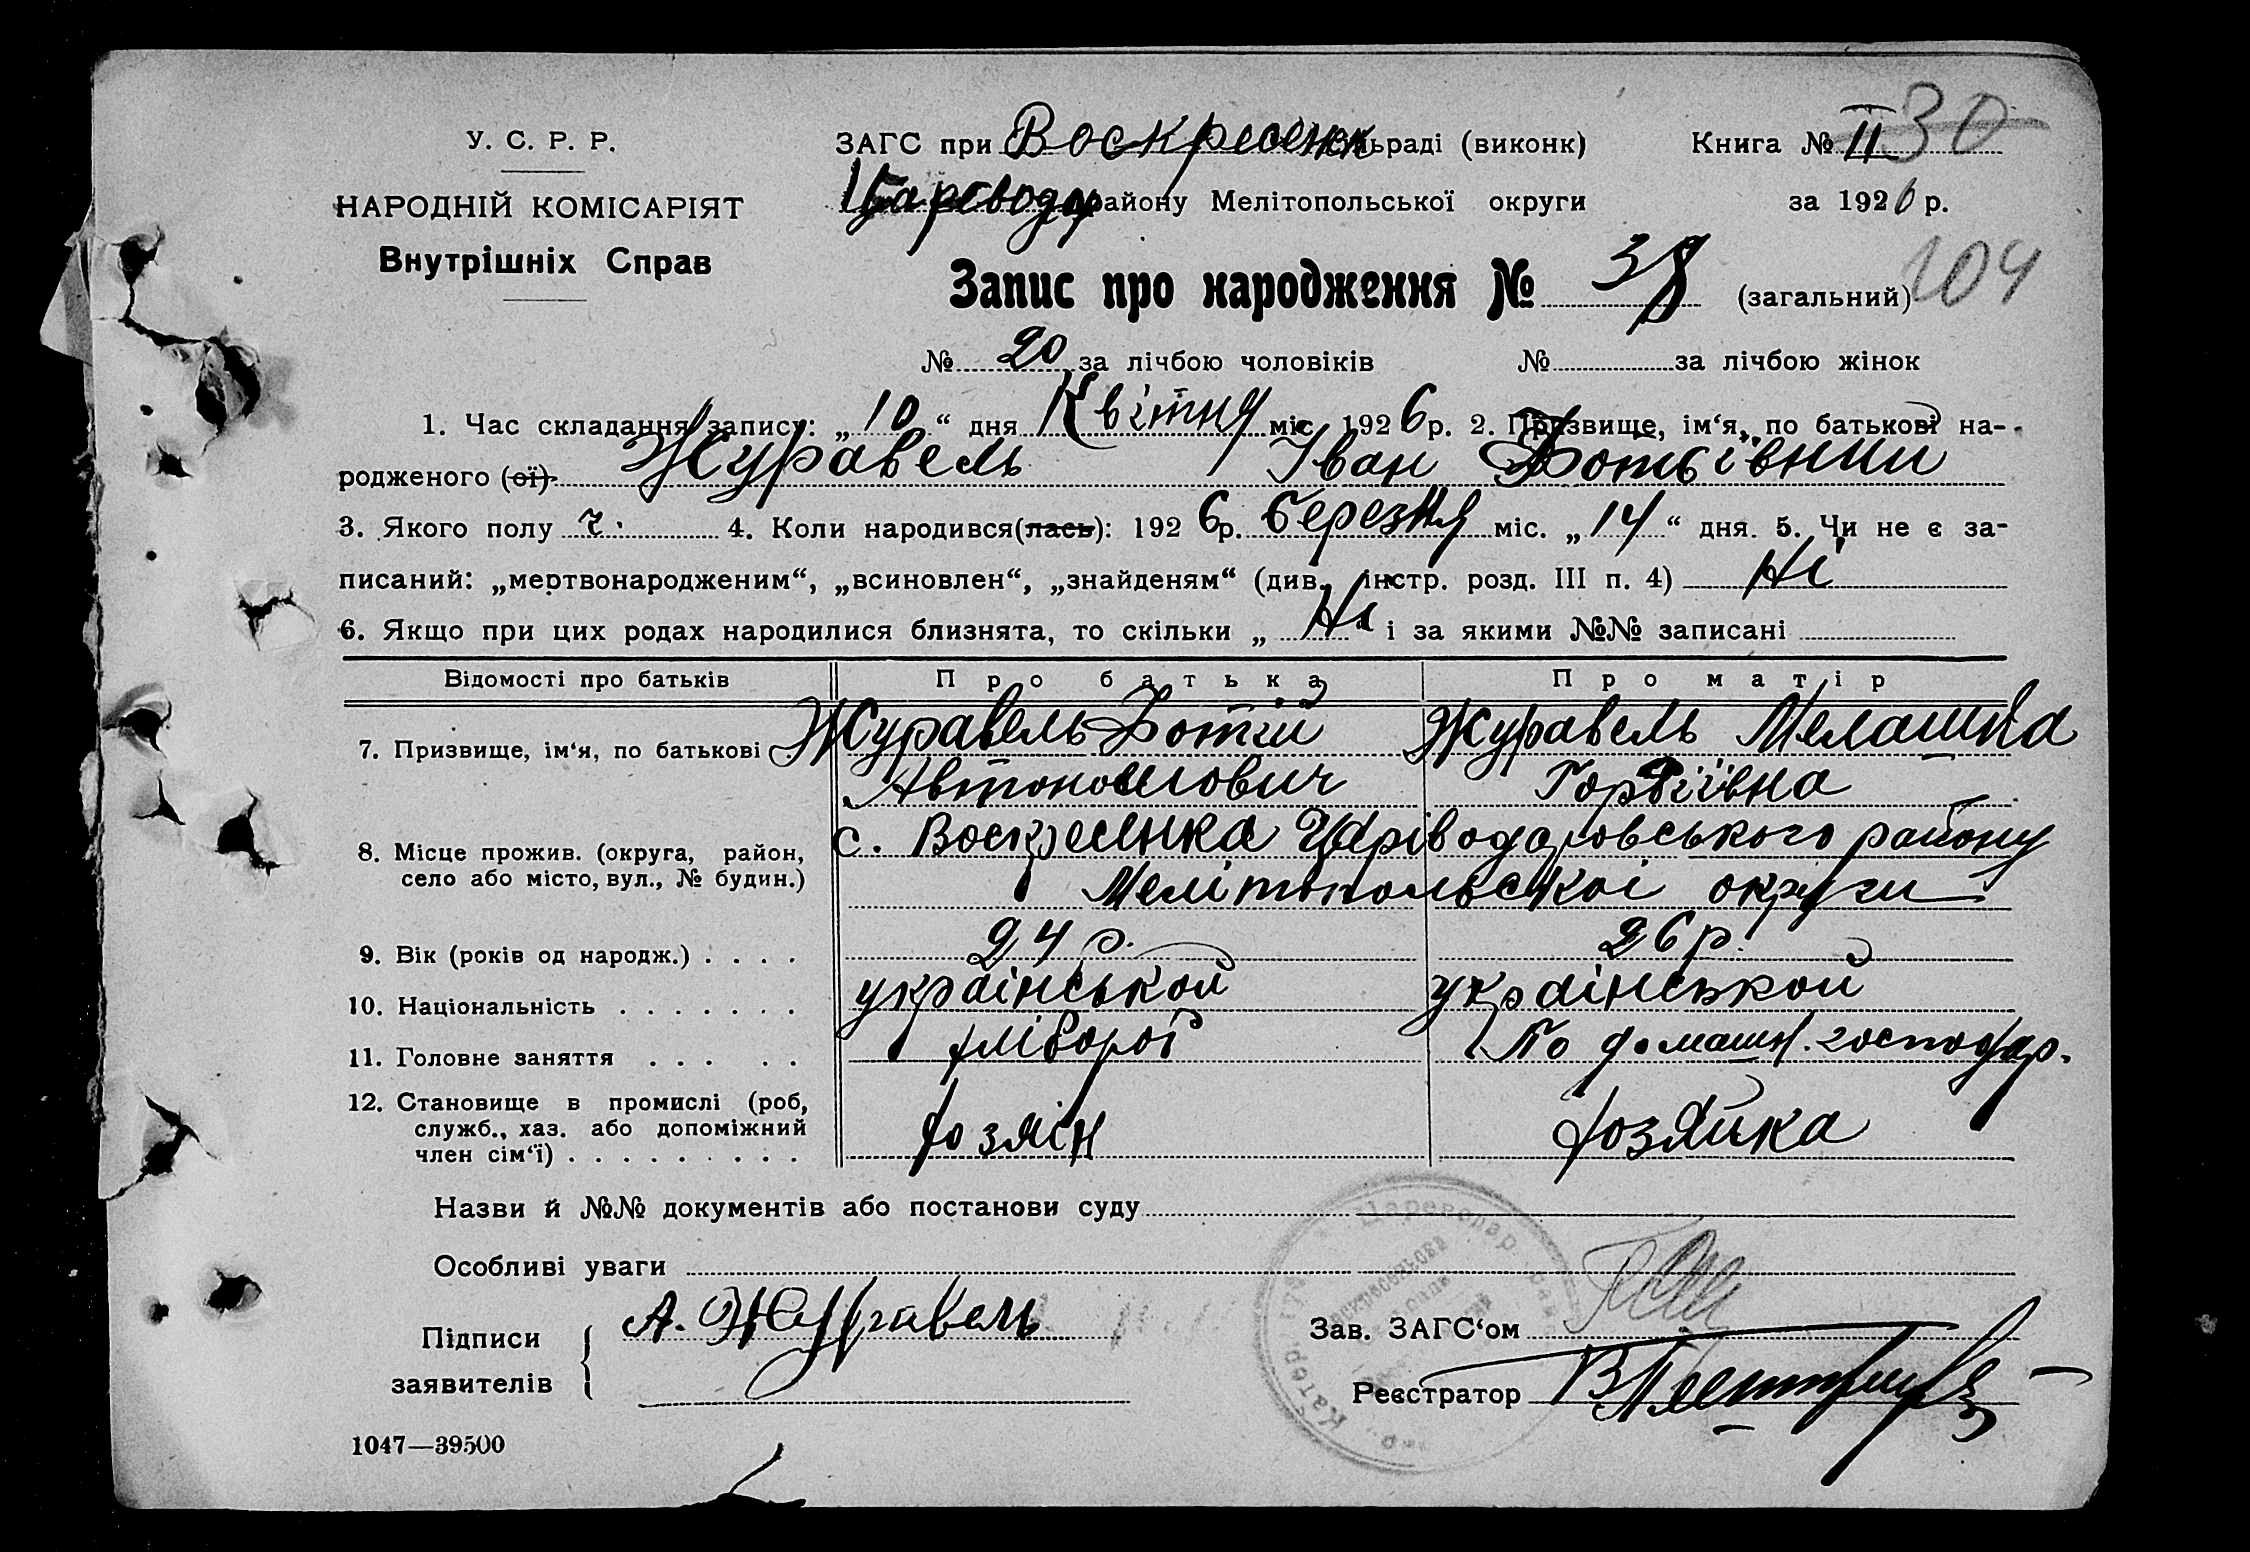 У. С. Р. Р.
НАРОДНІЙ КОМІСАРІЯТ
Внутрішніх Справ
ЗАГС при Воскресенк ільраді (виконк)
Царевода району Мелітопольської округи
Книга № II 30
за 1926 р.
Запис про народження № 38 (загальний) 104
№ 20 за лічбою чоловіків № за лічбою жінок
1. Час складання запису: „10“ дня Квітня міс. 1926 р. 2. Призвище, ім‘я, по батькові на-
родженого (ої) Журавель Іван Фотьівнии
3. Якого полу ч. 4. Коли народився(лась): 1926 р. березня міс. „14“ дня. 5. Чи не є за-
писаний: „мертвонародженим“, „всиновлен“, „знайденям“ (див. інстр. розд. III п. 4) Ні
6. Якщо при цих родах народилися близнята, то скільки „ Ні і за якими №№ записані
Відомості про батьків Про батька Про матір
7. Призвище, ім‘я, по батькові Журавель Фотій Журавель Мелашка
Автономович Гордіївна
8. Місце прожив. (округа, район, село або місто, вул., № будин.) с. Воскресенка Царіводаровського району
Мелітопольскоі округи
9. Вік (років од народж.) 24 р. 26 р.
10. Національність украінськой украінськой
11. Головне заняття хлібороб По домашн. господар.
12. Становище в промислі (роб, служб., хаз. або допоміжний член сім‘ї) хозяін хозяйка
Назви й №№ документів або постанови суду
Особливі уваги
Підписи заявителів А. Журавель
Зав. ЗАГС‘ом
Реєстратор
1047—39500